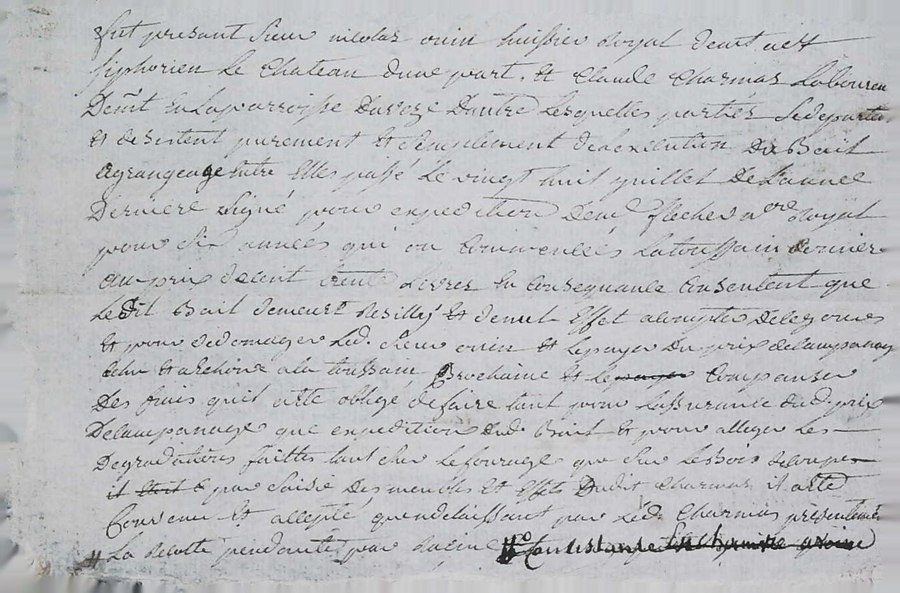 fut present sieur nicolas onin huissier Royal de cit a st
siphorien Le chateau dune part, Et Claude Charmas Laboureur
Dem't En Laparroisse Entre Lesquelles parties Se departe
Et desistent purement Et simplement delexecution Du Bail
agrangeage Entre Elles passé Le vingt huit juillet De Lannée
Derniere signé pour expedition flecher n're Royal
pour six années qui on Commencées Latoussain dernier
au prix de cent trente Livres En Consequance Consentent que
Ledit Bail demeurt Resillé Et denul Effet acompter De
Et pour dedomager Led. sieur onin Et Lepayer Du prix
a la toussain prochaine Et Le payer Compenser
Des frais quil atté oblige defaire tant pour Lassurance dud. prix
que expedition Dud. Bail Et pour alleger Les
Degradations faittes tant cher Lefourage que sur Le Bois
il Etoit par saisie Des meubles Et Effets Dudit Charmas il atté
Convenu Et accepté quen delaissant par Led. Charmas presentement
La Recolte pendante par Racine